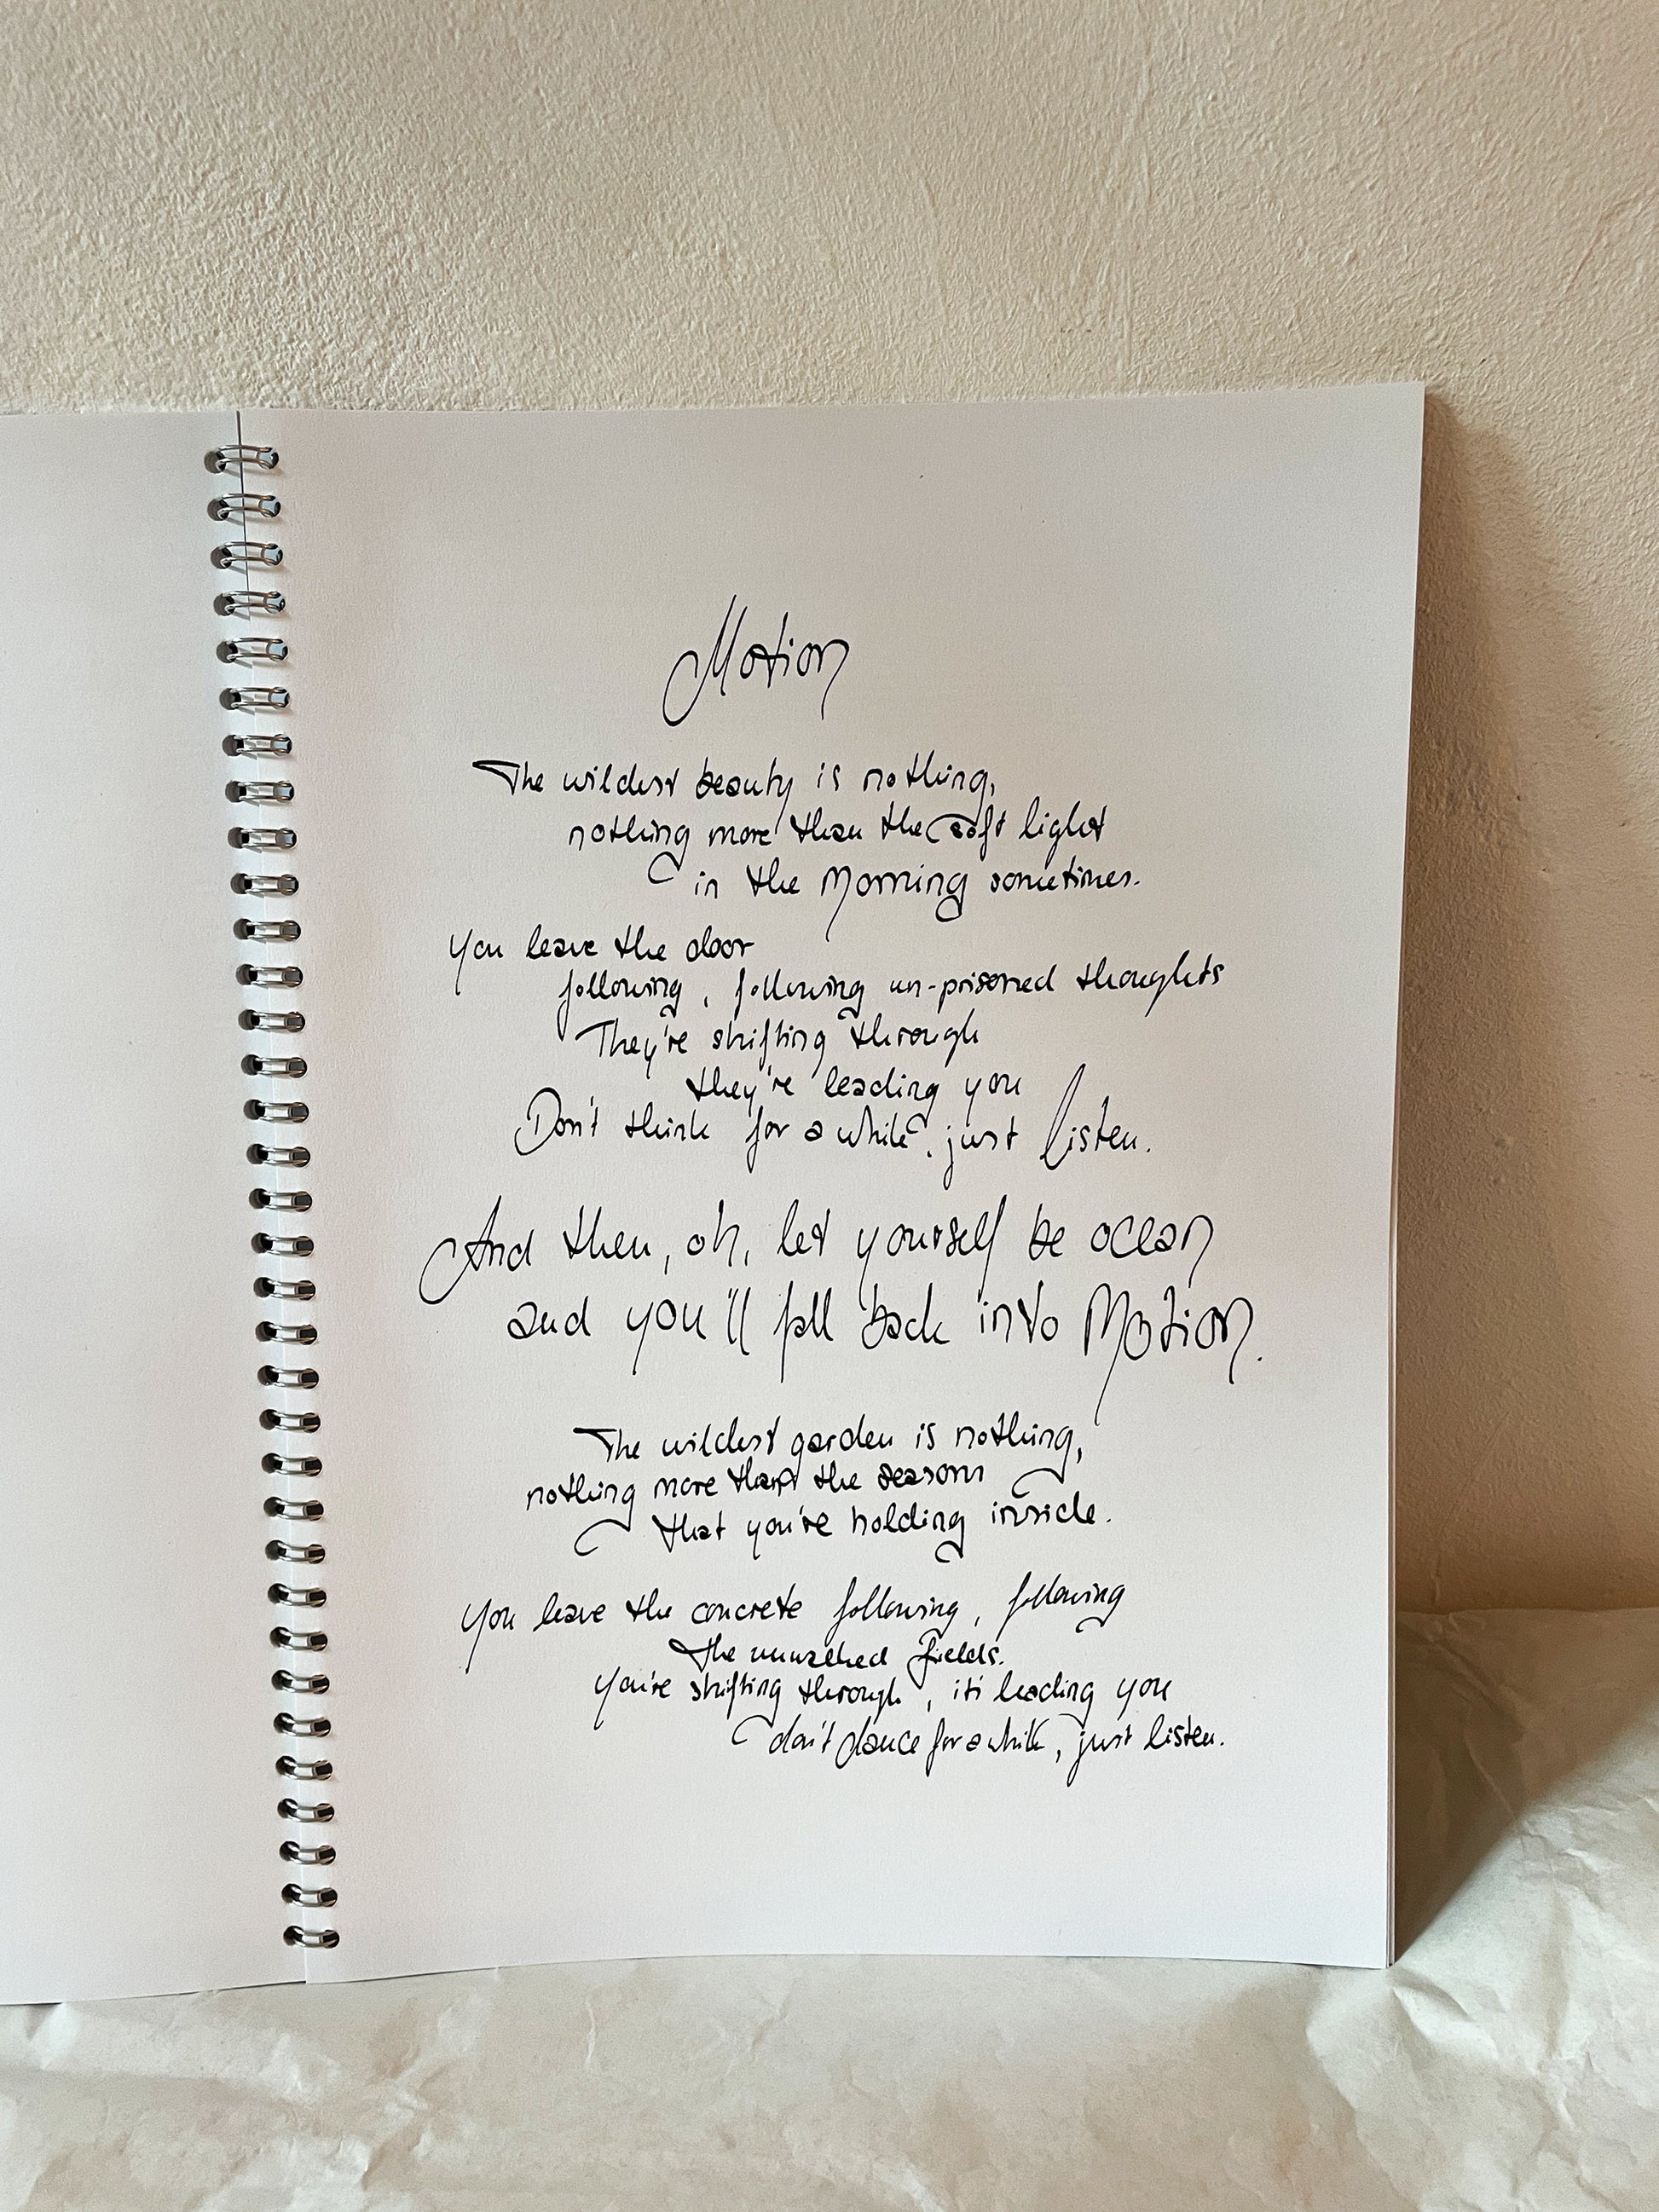 Motion
The wildest beauty is nothing,
nothing more than the soft light
in the morning sometimes.
You leave the door
following, following un-prisoned thoughts
They're shifting through
they're leading you
Don't think for a while, just listen.
And then, oh, let yourself be ocean
and you'll fall back into Motion.
The wildest garden is nothing,
nothing more than the seasons
that you're holding inside.
You leave the concrete following, following
the fields.
You're shifting through, it's leading you
don't dance for a while, just listen.